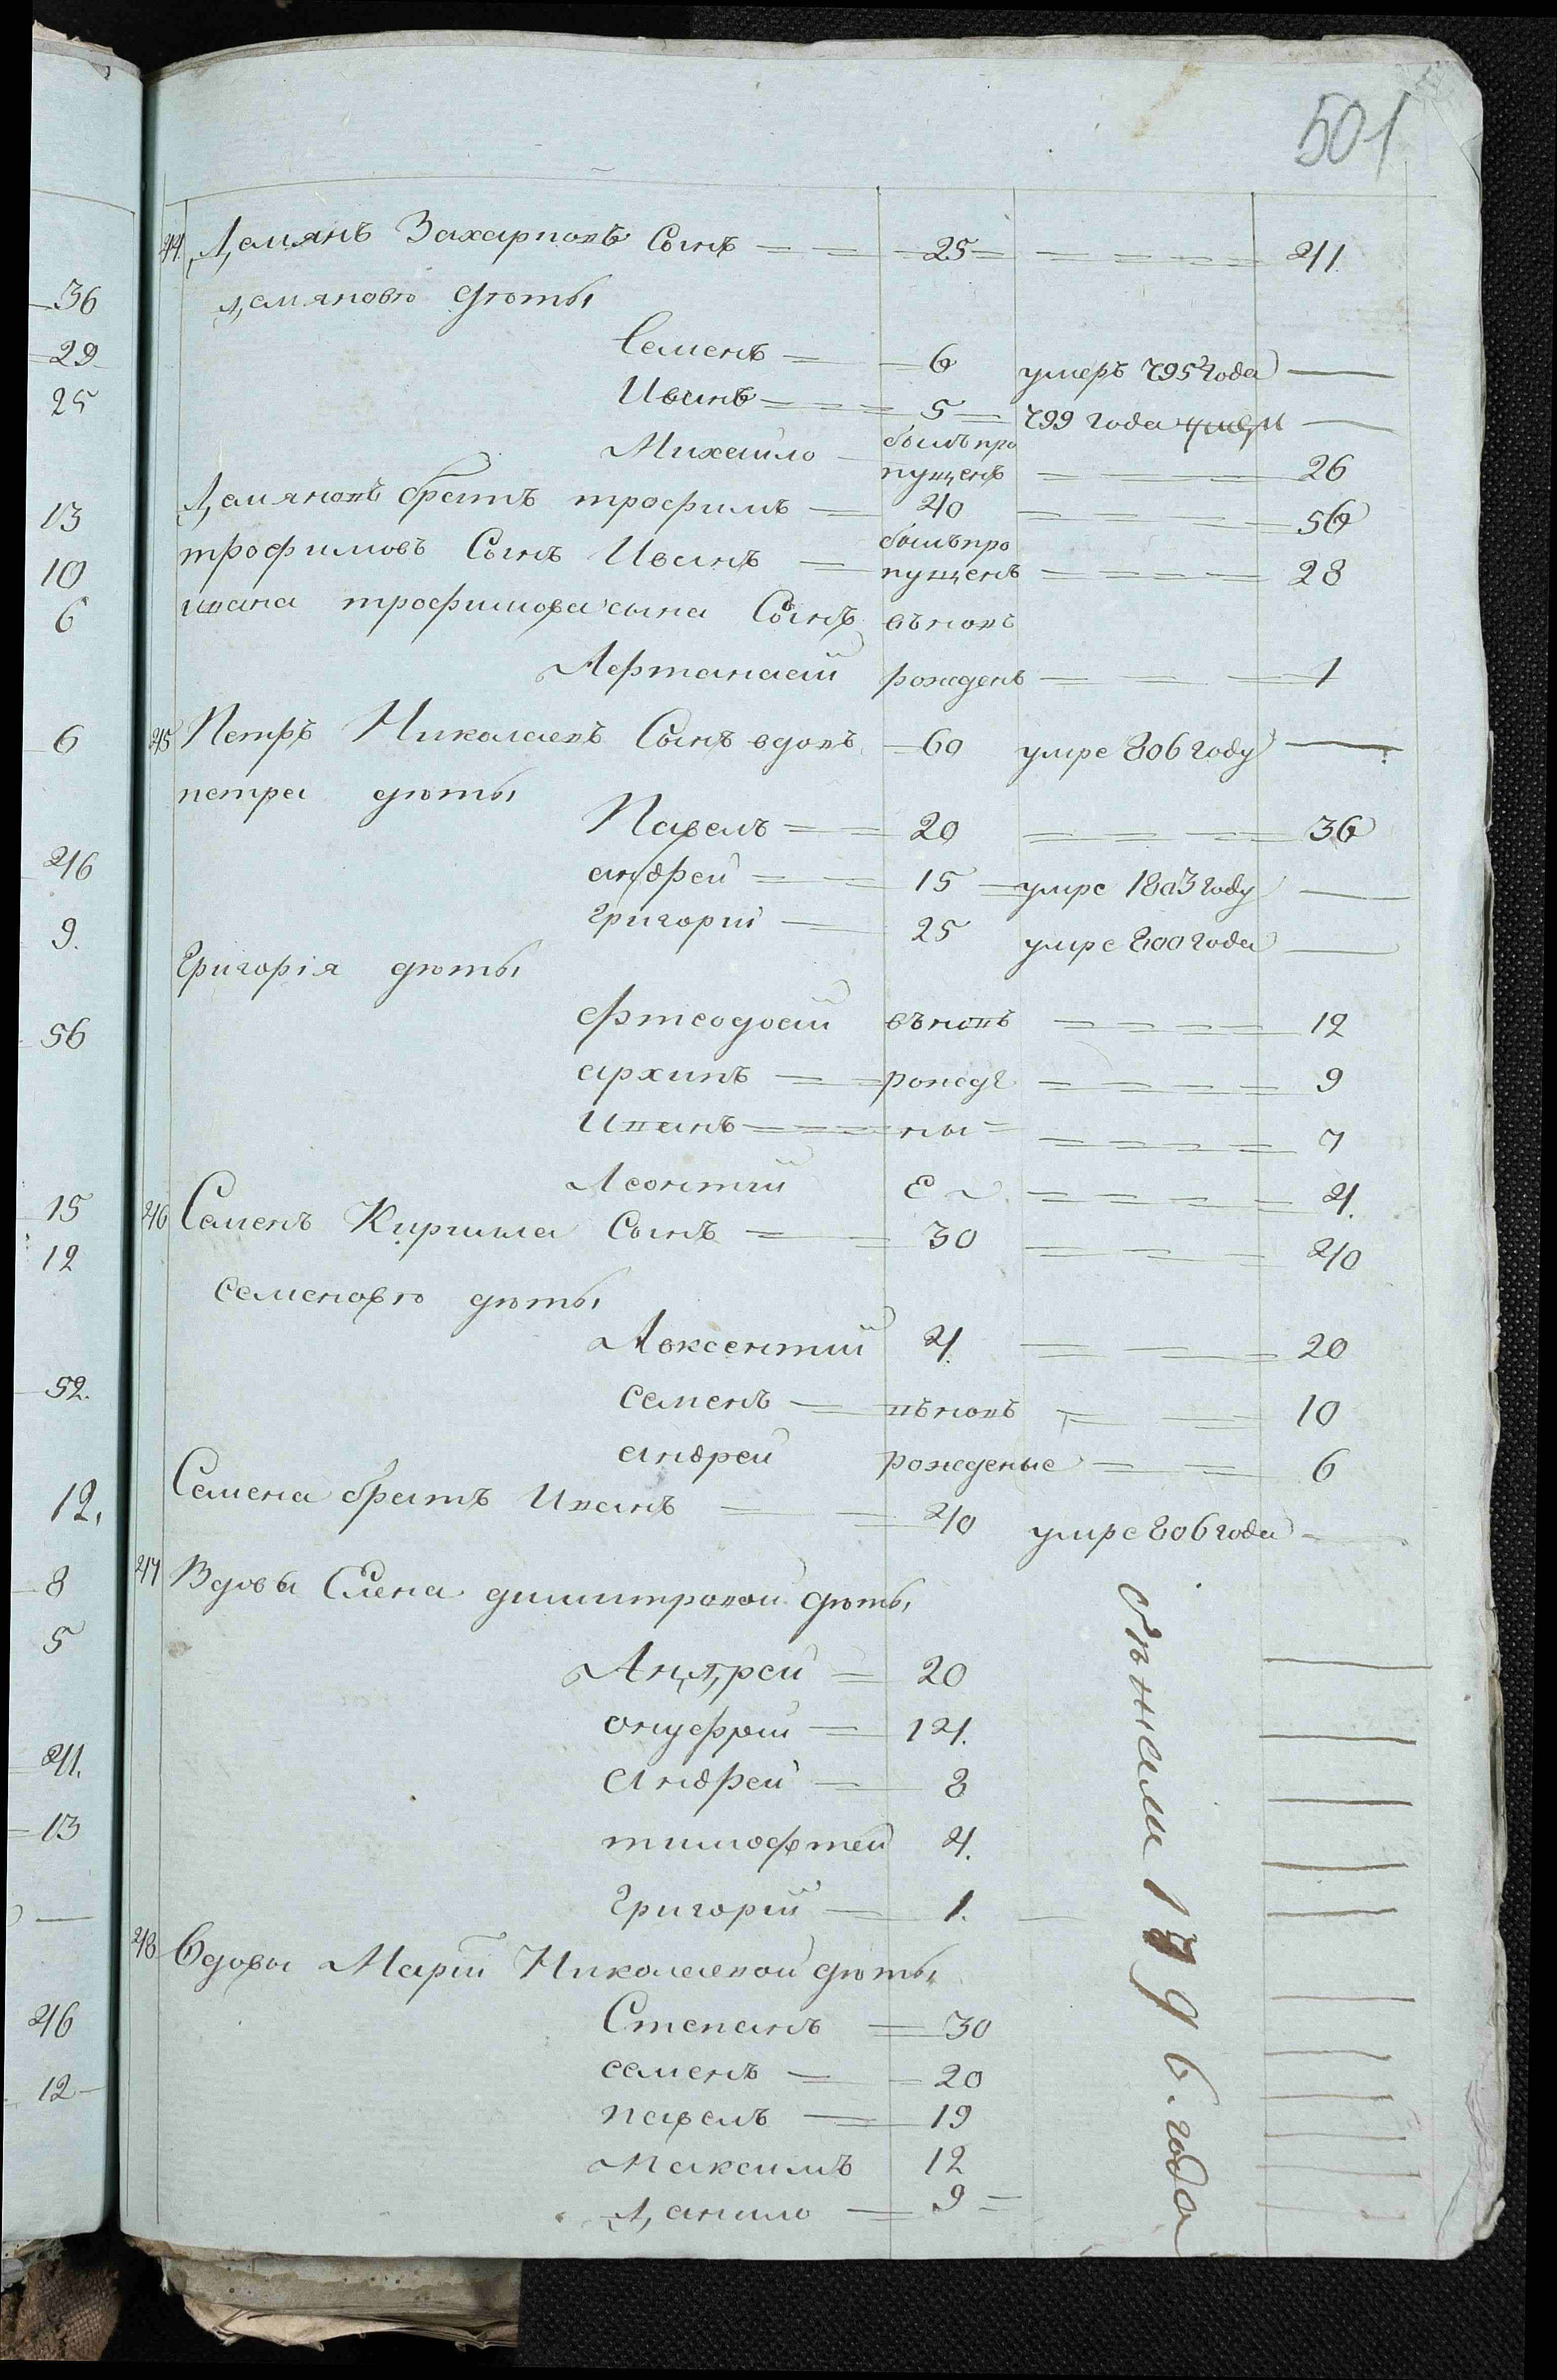 501
36
29
25
13
10
6
6
46
9.
56
15
12
52.
12.
8
5
41.
13
46
12
44. Дамянъ Захарповъ Сынъ 25 41
дамяновы дѣты
Семенъ 6 умеръ 795 года
Иванъ 5 799 года
Михаило былъ про
пущенъ 26
Дамяновъ братъ трофимъ 40 56
трофимовъ Сынъ Иванъ былъ про
пущенъ 28
ивана трофимова сына Сынъ въ новъ
Афтанасий рожденъ 1
45 Петръ Николаевъ Сынъ вдовъ 60 умре 806 году
петра дѣты
Павелъ 20 36
андрей 15 умре 1803 году
григорий 25 умре 800 года
Григорія дѣты
фтеодосий въ новъ 12
архипъ рожде 9
Иванъ ны 7
Леонтий е 4.
46 Семенъ Кирила Сынъ 30 40
семеновы дѣты
Авксентий 4. 20
семенъ въ новъ 10
андрей рожденые 6
Семена братъ Иванъ 40 умре 806 года
47 Вдовы Елена димитровой дѣты
Андрей 20
онуфрий 14.
андрей 8
тимофтей 4.
григорий 1.
48 Вдовы Марии Николаевой дѣты
Степанъ 30
семенъ 20
павелъ 19
Максимъ 12
данило 9
бѣжали 1796. года